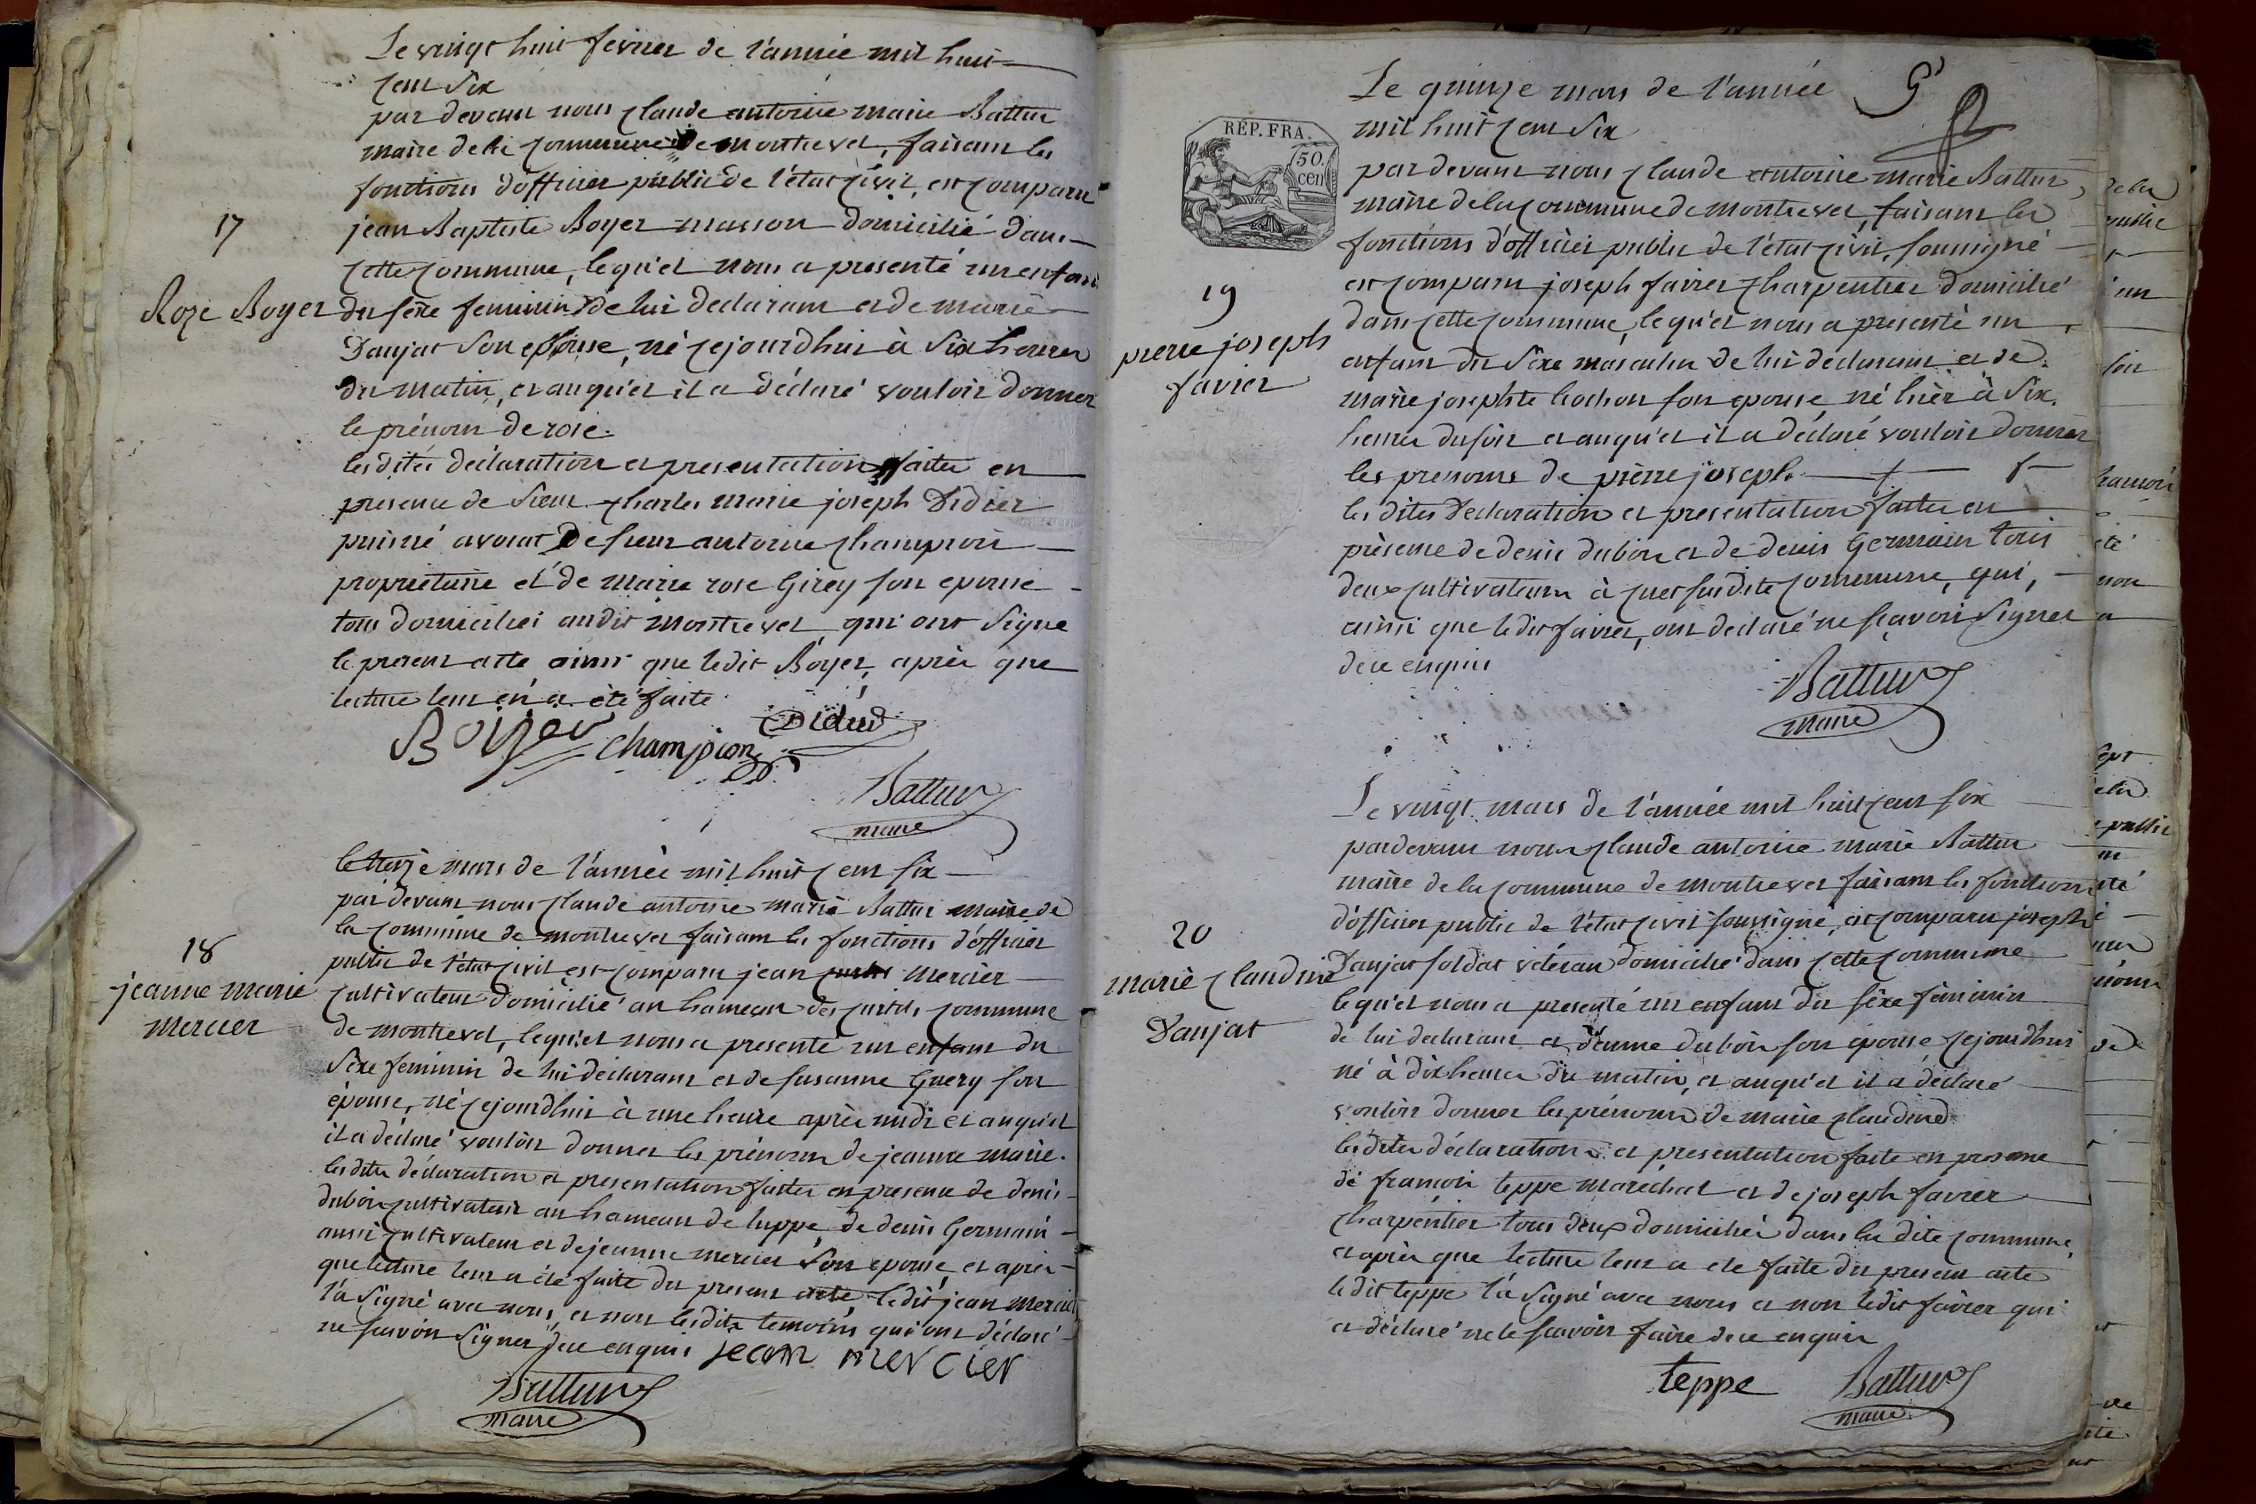 Le vingt huit fevrier de l'année mil huit
cent Six
par devant nous Claude antoine marie Battur
maire de la Commune de montrevel, faisant les
fonctions d'officier public de l'état Civil, est Comparu
17
jean Baptiste Boyer masson domicilié dans
Cette Commune, lequ'el nous a presenté un enfant
Roze Boyer
du sexe feminin de lui declarant et de marie
Daujat Son epouse, né Cejourdhui à Six heures
du matin, et auqu'el il a déclaré vouloir donner
le prénom de rose.
les dites déclaration et presentation faites en
presence de Sieur Charles marie joseph Didier
avocat De sieur antoine Champion
propriétaire et de marie rose Girey son epouse
tous domiciliés audit montrevel, qui ont Signé
le present acte ainsi que ledit Boyer, après que
lecture leur en a été faite
Boyer Champion Didier
Battur
maire
le treize mars de l'année mil huit Cent six
par devant nous Claude antoine marie Battur maire de
la Commune de montrevel faisant les fonctions d'officier
18
public de l'état Civil est Comparu jean mercier
jeanne marie
mercier
Cultivateur domicilié au hameau des Curtils Commune
de montrevel, lequ'el nous a presenté un enfant du
Sexe feminin de lui déclarant et de susanne Guery son
épouse, né Cejourdhui à une heure après midi et auqu'el
il a déclaré vouloir donner les prénoms de jeanne marie.
les dites déclaration et presentation faites en presence de denis
dubois Cultivateur au hameau de luppe de denis Germain
aussi Cultivateur et de jeanne mercier Son epouse, et après
que lecture leur a été faite du present acte ledit jean mercier
l'a Signé avec nous, et non lesdits temoins qui ont déclaré
ne scavoir Signer de ce enquis jean mercier
Battur
maire
Le quinze mars de l'année
mil huit Cent Six
RÉP. FRA.
50.
cen
par devant nous Claude antoine marie Battur,
maire de la Commune de montrevel, faisant les
fonctions d'officier public de l'état Civil, soussigné
19
pierre joseph
favier
est Comparu joseph favier Charpentier domicilié
dans Cette Commune, lequ'el nous a presenté un
enfant du Sexe masculin de lui déclarant et de
marie josephte hochon son epouse, né hier à Six
heures du soir et auqu'el il a déclaré vouloir donner
les prenoms de pierre joseph.
les dites declaration et presentation faites en
présence de denis dubois et de denis Germain tous
deux Cultivateurs à Cuet susdite Commune, qui,
ainsi que ledit favier, ont declaré ne scavoir Signer
de ce enquis
Battur
maire
Le vingt mars de l'année mil huit Cent six
pardevant nous Claude antoine marie Battur
maire de la Commune de montrevel faisant les fonctions
d'officier public de l'état Civil soussigné, est Comparu joseph
20
marie Claudine
Daujat
Daujat soldat vétéran domicilié dans Cette Commune
lequ'el nous a presenté un enfant du sexe féminin
de lui declarant et d'anne dubois son épouse Cejourdhui
né à dix heures du matin, et auqu'el il a déclaré
vouloir donner les prénoms de marie Claudine
les dites déclaration et presentation faite en presence
de francois teppe marechal et de joseph favier
Charpentier tous deux domiciliés dans la dite Commune,
et après que lecture leur a été faite du present acte
ledit teppe l'a Signé avec nous et non ledit favier qui
a déclaré ne le scavoir faire de ce enquis
teppe Battur
maire